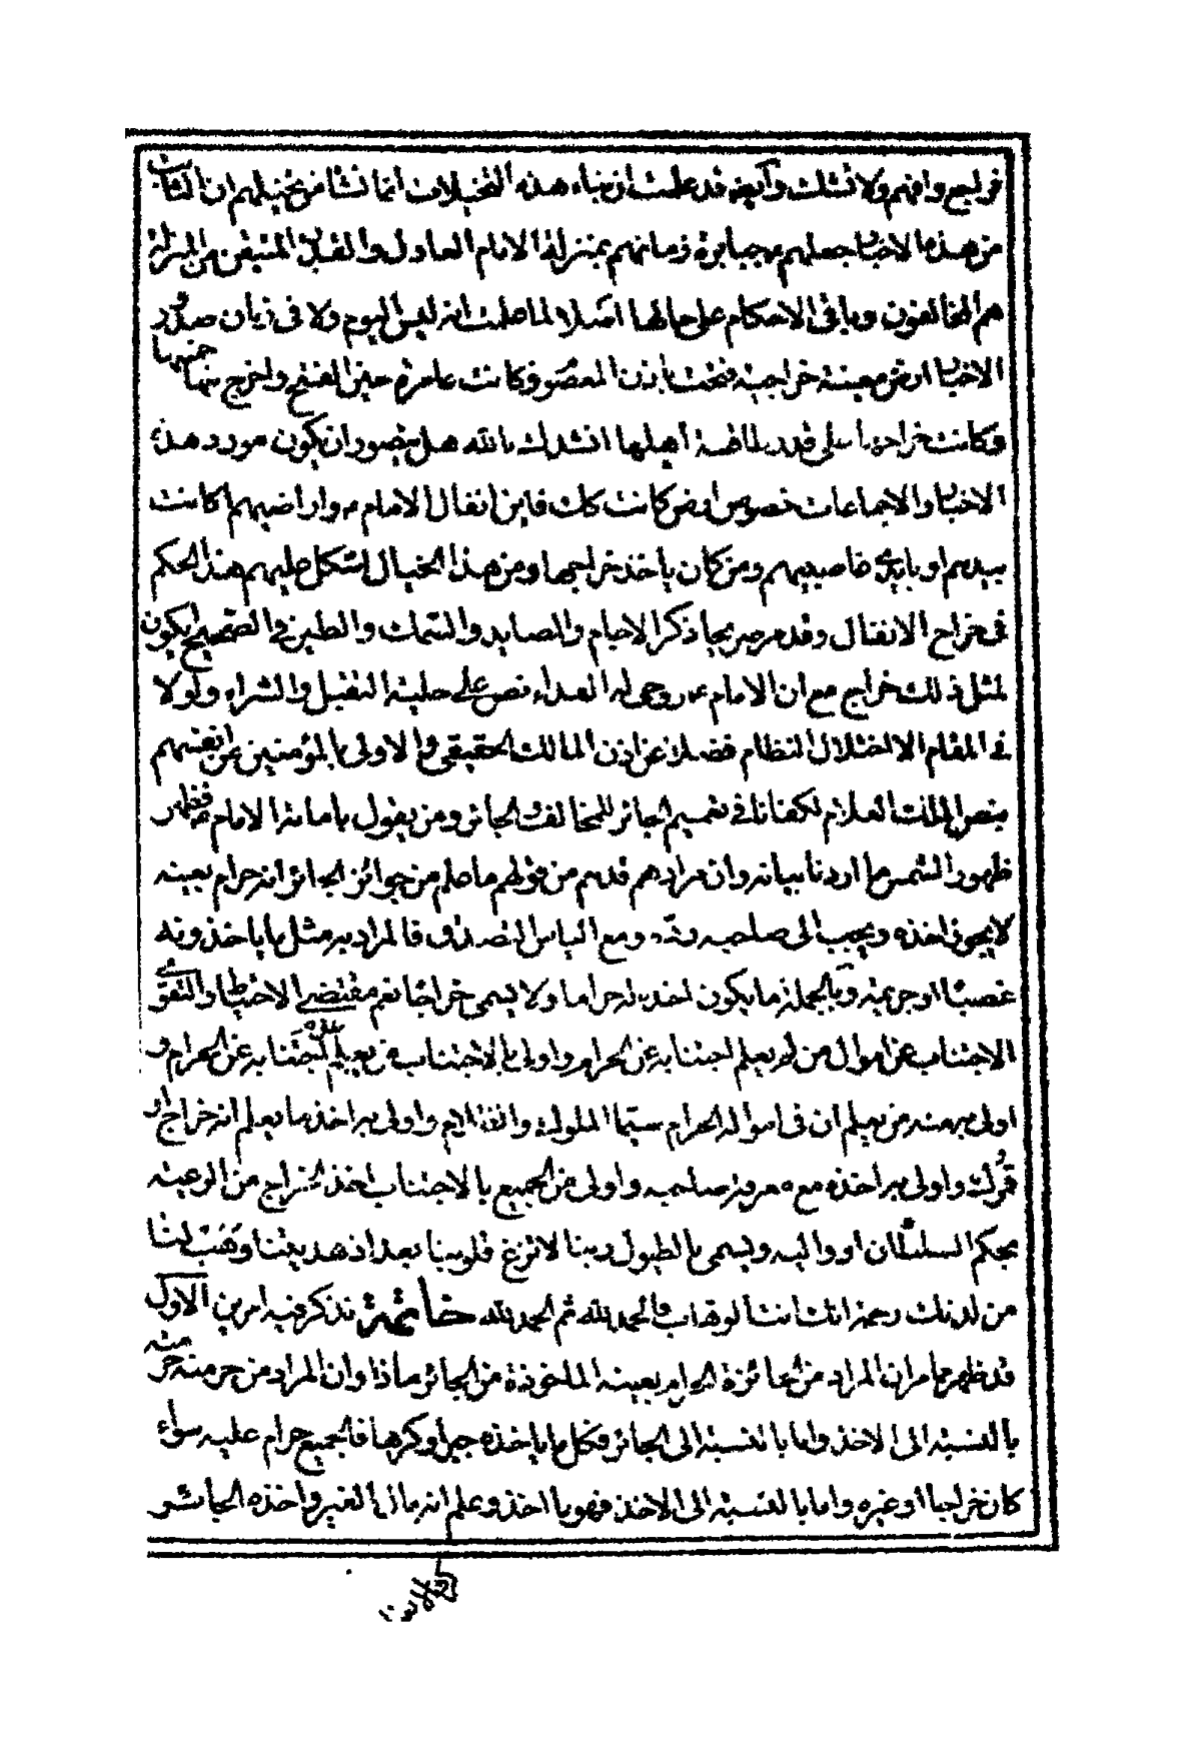 فراجع وافهم ولا تشك وآيضا قد علمت ان بناء هذه التخيلات انما نشأ من تخيلهم ان الثابت
من هذه الاخبار جعلهم جبابرة زمانهم بمنزلة الامام العادل والقدر المتيقن من المنزلة
هم المخالفون وباقى الاحكام على حالها اصلا لما علمت انه ليس اليوم ولا فى زمان صدور
الاخبار ارض معينة خراجية فتحت باذن المعصوم وكانت عامرة حين الفتح واخرج منها خمسها
وكانت خراجها على قدر طاقة اهلها انشدك بالله هل يتصور ان يكون مورد هذه
الاخبار والاجماعات خصوص ارض كانت كك فاين انفال الامام واراضيهم كانت
بيدهم او بايدى غاصبيهم ومن كان ياخذ خراجها ومن هذا الخيال اشكل عليهم هذا الحكم
فى خراج الانفال وقد مر صريحا ذكر الاجام والمصايد والسمك والطير فى الصحيح ايكون
لمثل ذلك خراج مع ان الامام روحى له الفداء نص على حلية التقبل والشراء ولولا
فى المقام الا اختلال النظام فضلا عن اذن المالك الحقيقى والاولى بالمؤمنين من انفسهم
بنص الملك العلام لكفانا فى تعميم الجائر للمخالف الجائر ومن يقول بامامة الامام فظهر
ظهور الشمس ما اردنا بيانه وان مرادهم قدهم من قولهم ما علم من جوائز الجائر انه حرام بعينه
لا يجوز اخذه ويجب الى صاحبه رده ومع الياس التصدق فالمراد به مثل ما ياخذونه
غصبا او جريمة وبالجملة ما يكون اخذه له حراما ولا يسمى خراجا نعم مقتضى الاحتياط والتقوى
الاجتناب عن اموال من لم يعلم اجتنابه عن الحرام واولى بالاجتناب من يعلم عدم اجتنابه عن الحرام و
اولى به منه من يعلم ان فى امواله الحرام سيما الملوك والحكام واولى به اخذ ما يعلم انه خراج او
ترك واولى به اخذه مع معرفة صاحبه واولى من الجميع بالاجتناب اخذ الخراج من الرعية
بحكم السلطان او واليه ويسمى بالطيول ربنا لا تزغ قلوبنا بعد اذ هديتنا وهب لنا
من لدنك رحمة انك انت الوهاب والحمد لله ثم الحمد لله خاتمة نذكر فيه امرين الاول
قد ظهر مما مر ان المراد من الجائزة الحرام بعينه الماخوذة من الجائر ماذا وان المراد من حرمته حرمته
بالنسبة الى الاخذ واما بالنسبة الى الجائر فكل ما ياخذه جبرا وكرها فالجميع حرام عليه سواء
كان خراجا او غيره واما بالنسبة الى الاخذ فهو ما اخذ وعلم انه مال الغير واخذه الجائر